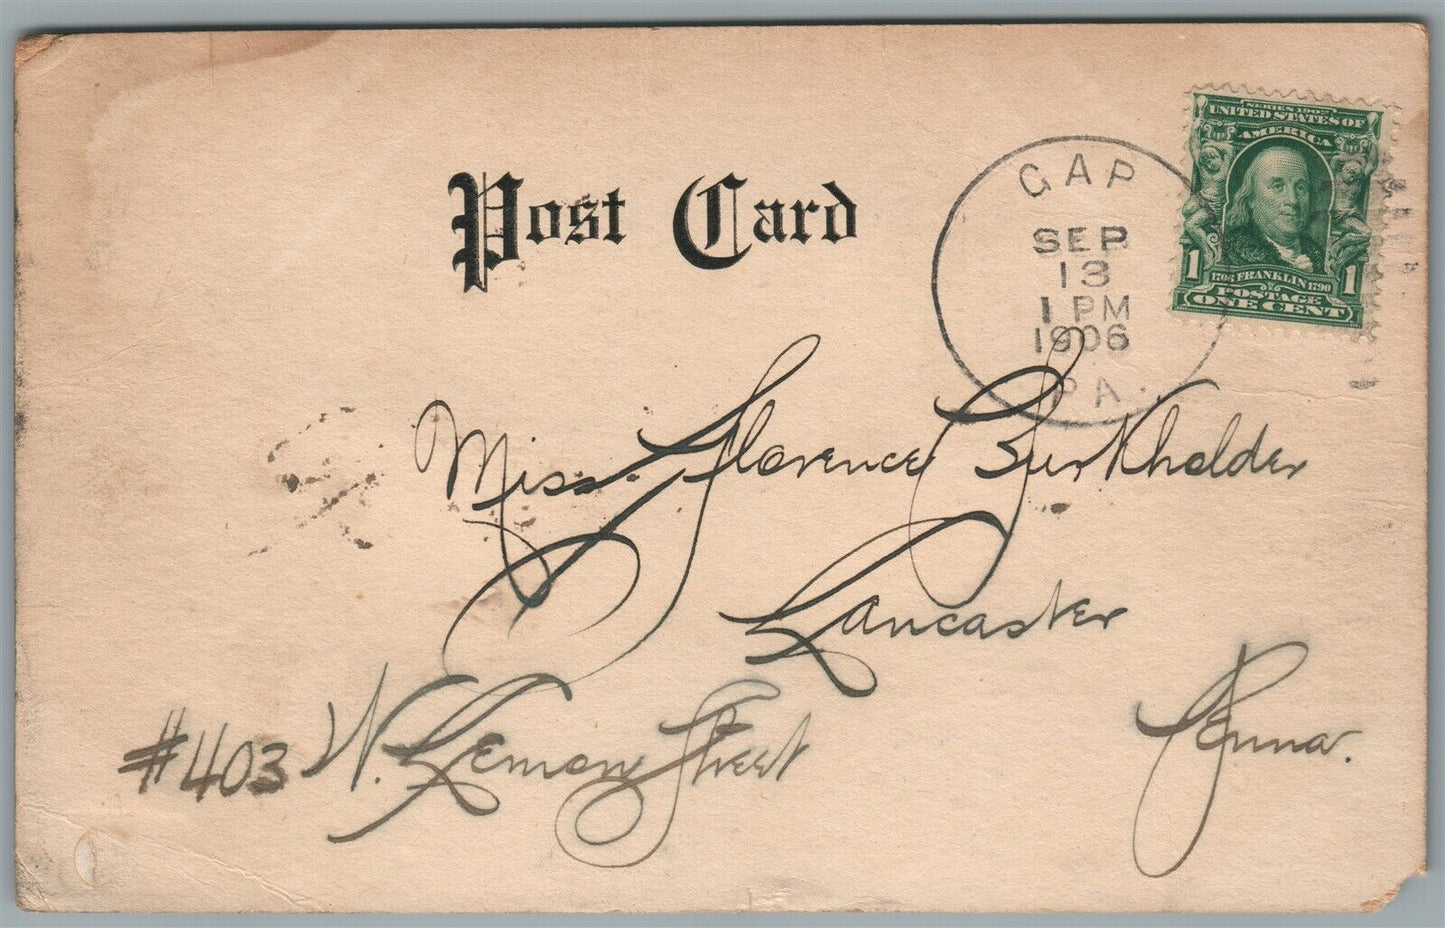 Post Card
GAP
SEP
13
1 PM
1906
PA.
SERIES 1902
UNITED STATES OF
AMERICA
1706 FRANKLIN 1790
1 POSTAGE 1
ONE CENT
Miss. Florence Burkholder
Lancaster
Penna.
#403 W. Lemon Street